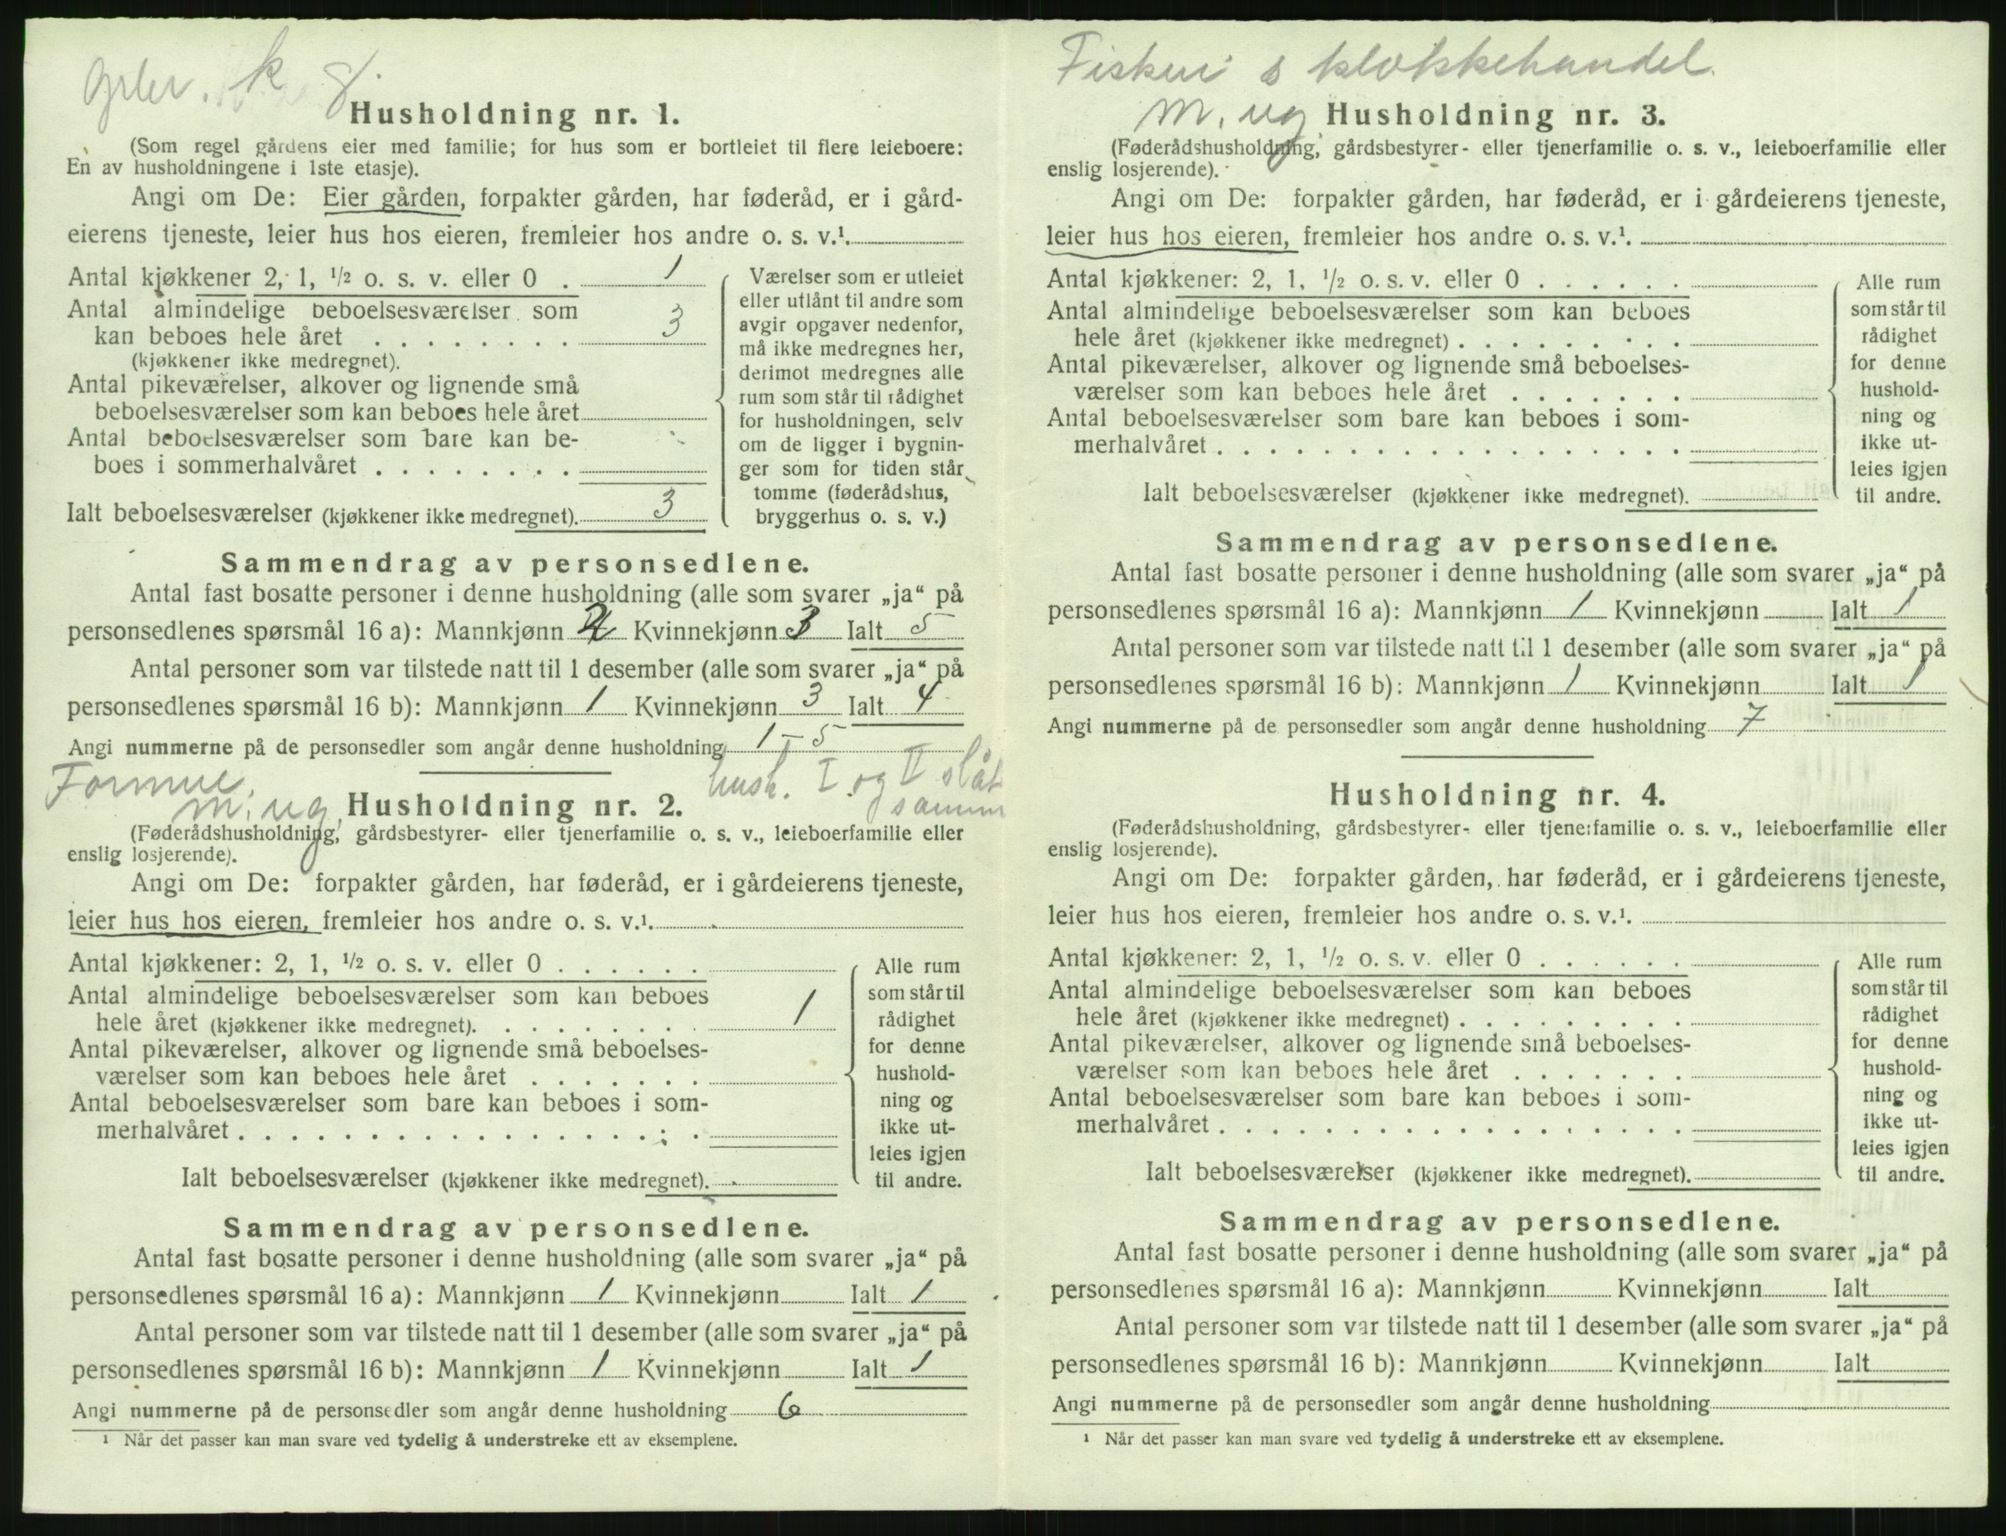 k g.
Husholdning nr. 1.
(Som regel gårdens eier med familie; for hus som er bortleiet til flere leieboere:
En av husholdningene i 1ste etasje).
Angi om De: Eier gården, forpakter gården, har føderåd, er i gård-
eierens tjeneste, leier hus hos eieren, fremleier hos andre o. s. v.¹.
Antal kjøkkener 2, 1, ½ o. s. v. eller 0 . 1
Antal almindelige beboelsesværelser som
kan beboes hele året . . . . . . . . 3
(kjøkkener ikke medregnet).
Antal pikeværelser, alkover og lignende små
beboelsesværelser som kan beboes hele året
Antal beboelsesværelser som bare kan be-
boes i sommerhalvåret . . . . . . . .
Ialt beboelsesværelser (kjøkkener ikke medregnet). 3
Værelser som er utleiet
eller utlånt til andre som
avgir opgaver nedenfor,
må ikke medregnes her,
derimot medregnes alle
rum som står til rådighet
for husholdningen, selv
om de ligger i bygnin-
ger som for tiden står
tomme (føderådshus,
bryggerhus o. s. v.)
Sammendrag av personsedlene.
Antal fast bosatte personer i denne husholdning (alle som svarer „ja“ på
personsedlenes spørsmål 16 a): Mannkjønn 2 Kvinnekjønn 3 Ialt 5
Antal personer som var tilstede natt til 1 desember (alle som svarer „ja“ på
personsedlenes spørsmål 16 b): Mannkjønn 1 Kvinnekjønn 3 Ialt 4
Angi nummerne på de personsedler som angår denne husholdning 1 - 5
Formue. hush. I og II slåt
m. ug. Husholdning nr. 2. samm
(Føderådshusholdning, gårdsbestyrer- eller tjenerfamilie o. s. v., leieboerfamilie eller
enslig losjerende).
Angi om De: forpakter gården, har føderåd, er i gårdeierens tjeneste,
leier hus hos eieren, fremleier hos andre o. s. v.¹.
Antal kjøkkener: 2, 1, ½ o. s. v. eller 0 . . . . . .
Antal almindelige beboelsesværelser som kan beboes
hele året (kjøkkener ikke medregnet). . . . . . . . . 1
Antal pikeværelser, alkover og lignende små beboelses-
værelser som kan beboes hele året . . . . . . .
Antal beboelsesværelser som bare kan beboes i som-
merhalvåret . . . . . . . . . . . . . . . . . .
Ialt beboelsesværelser (kjøkkener ikke medregnet).
Alle rum
som står til
rådighet
for denne
hushold-
ning og
ikke ut-
leies igjen
til andre.
Sammendrag av personsedlene.
Antal fast bosatte personer i denne husholdning (alle som svarer „ja“ på
personsedlenes spørsmål 16 a): Mannkjønn 1 Kvinnekjønn Ialt 1
Antal personer som var tilstede natt til 1 desember (alle som svarer „ja“ på
personsedlenes spørsmål 16 b): Mannkjønn 1 Kvinnekjønn Ialt 1
Angi nummerne på de personsedler som angår denne husholdning 6
¹ Når det passer kan man svare ved tydelig å understreke ett av eksemplene.
Fiskeri & klokkehandel.
m. ug Husholdning nr. 3.
(Føderådshusholdning, gårdsbestyrer- eller tjenerfamilie o. s. v., leieboerfamilie eller
enslig losjerende).
Angi om De: forpakter gården, har føderåd, er i gårdeierens tjeneste,
leier hus hos eieren, fremleier hos andre o. s. v.¹.
Antal kjøkkener: 2, 1, ½ o. s. v. eller 0 . . . . . .
Antal almindelige beboelsesværelser som kan beboes
hele året (kjøkkener ikke medregnet) . . . . . . . . .
Antal pikeværelser, alkover og lignende små beboelses-
værelser som kan beboes hele året . . . . . . .
Antal beboelsesværelser som bare kan beboes i som-
merhalvåret . . . . . . . . . . . . . . . . . .
Ialt beboelsesværelser (kjøkkener ikke medregnet).
Alle rum
som står til
rådighet
for denne
hushold-
ning og
ikke ut-
leies igjen
til andre.
Sammendrag av personsedlene.
Antal fast bosatte personer i denne husholdning (alle som svarer „ja“ på
personsedlenes spørsmål 16 a): Mannkjønn 1 Kvinnekjønn Ialt 1
Antal personer som var tilstede natt til 1 desember (alle som svarer „ja“ på
personsedlenes spørsmål 16 b): Mannkjønn 1 Kvinnekjønn Ialt 1
Angi nummerne på de personsedler som angår denne husholdning 7
Husholdning nr. 4.
(Føderådshusholdning, gårdsbestyrer- eller tjenerfamilie o. s. v., leieboerfamilie eller
enslig losjerende).
Angi om De: forpakter gården, har føderåd, er i gårdeierens tjeneste,
leier hus hos eieren, fremleier hos andre o. s. v.¹.
Antal kjøkkener: 2, 1, ½ o. s. v. eller 0 . . . . . .
Antal almindelige beboelsesværelser som kan beboes
hele året (kjøkkener ikke medregnet) . . . . . . . . .
Antal pikeværelser, alkover og lignende små beboelses-
værelser som kan beboes hele året . . . . . . .
Antal beboelsesværelser som bare kan beboes i som-
merhalvåret . . . . . . . . . . . . . . . . . .
Ialt beboelsesværelser (kjøkkener ikke medregnet).
Alle rum
som står til
rådighet
for denne
hushold-
ning og
ikke ut-
leies igjen
til andre.
Sammendrag av personsedlene.
Antal fast bosatte personer i denne husholdning (alle som svarer „ja“ på
personsedlenes spørsmål 16 a): Mannkjønn Kvinnekjønn Ialt
Antal personer som var tilstede natt til 1 desember (alle som svarer „ja“ på
personsedlenes spørsmål 16 b): Mannkjønn Kvinnekjønn Ialt
Angi nummerne på de personsedler som angår denne husholdning
¹ Når det passer kan man svare ved tydelig å understreke ett av eksemplene.